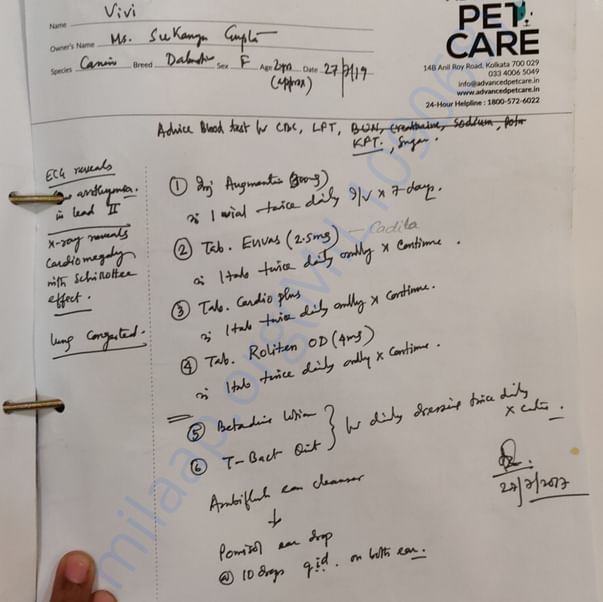 PET
CARE
14B Anil Roy Road, Kolkata 700 029
033 4006 5049
info@advancedpetcare.in
www.advancedpetcare.in
24-Hour Helpline : 1800-572-6022
Name Vivi
Owner's Name Ms. Sukanya Gupta
Species Canine Breed Sex F Age 2yrs Date 27/7/19
(approx)
Advice Blood test for CBC, LFT, BUN, Creatinine, Sodium,
KFT, Sugar.
ECG reveals
arrhythmia
in lead II
X-ray reveals
Cardiomegaly
with
effect.
lung congested.
① Inj Augmentin (300mg)
1 vial twice daily I/V x 7 days.
② Tab. Envas (2.5mg) - Cadila
1 tab twice daily orally x Continue.
③ Tab. Cardio plus
1 tab twice daily orally x Continue.
④ Tab. Roliten OD (4mg)
1 tab twice daily orally x Continue.
⑤ Betadine
⑥ T-Bact Oint } for daily dressing twice daily
Ambiflush ear cleanser
↓
Pomisol ear drop
@ 10 drops q.i.d. on both ear.
27/7/2017
milaap.org